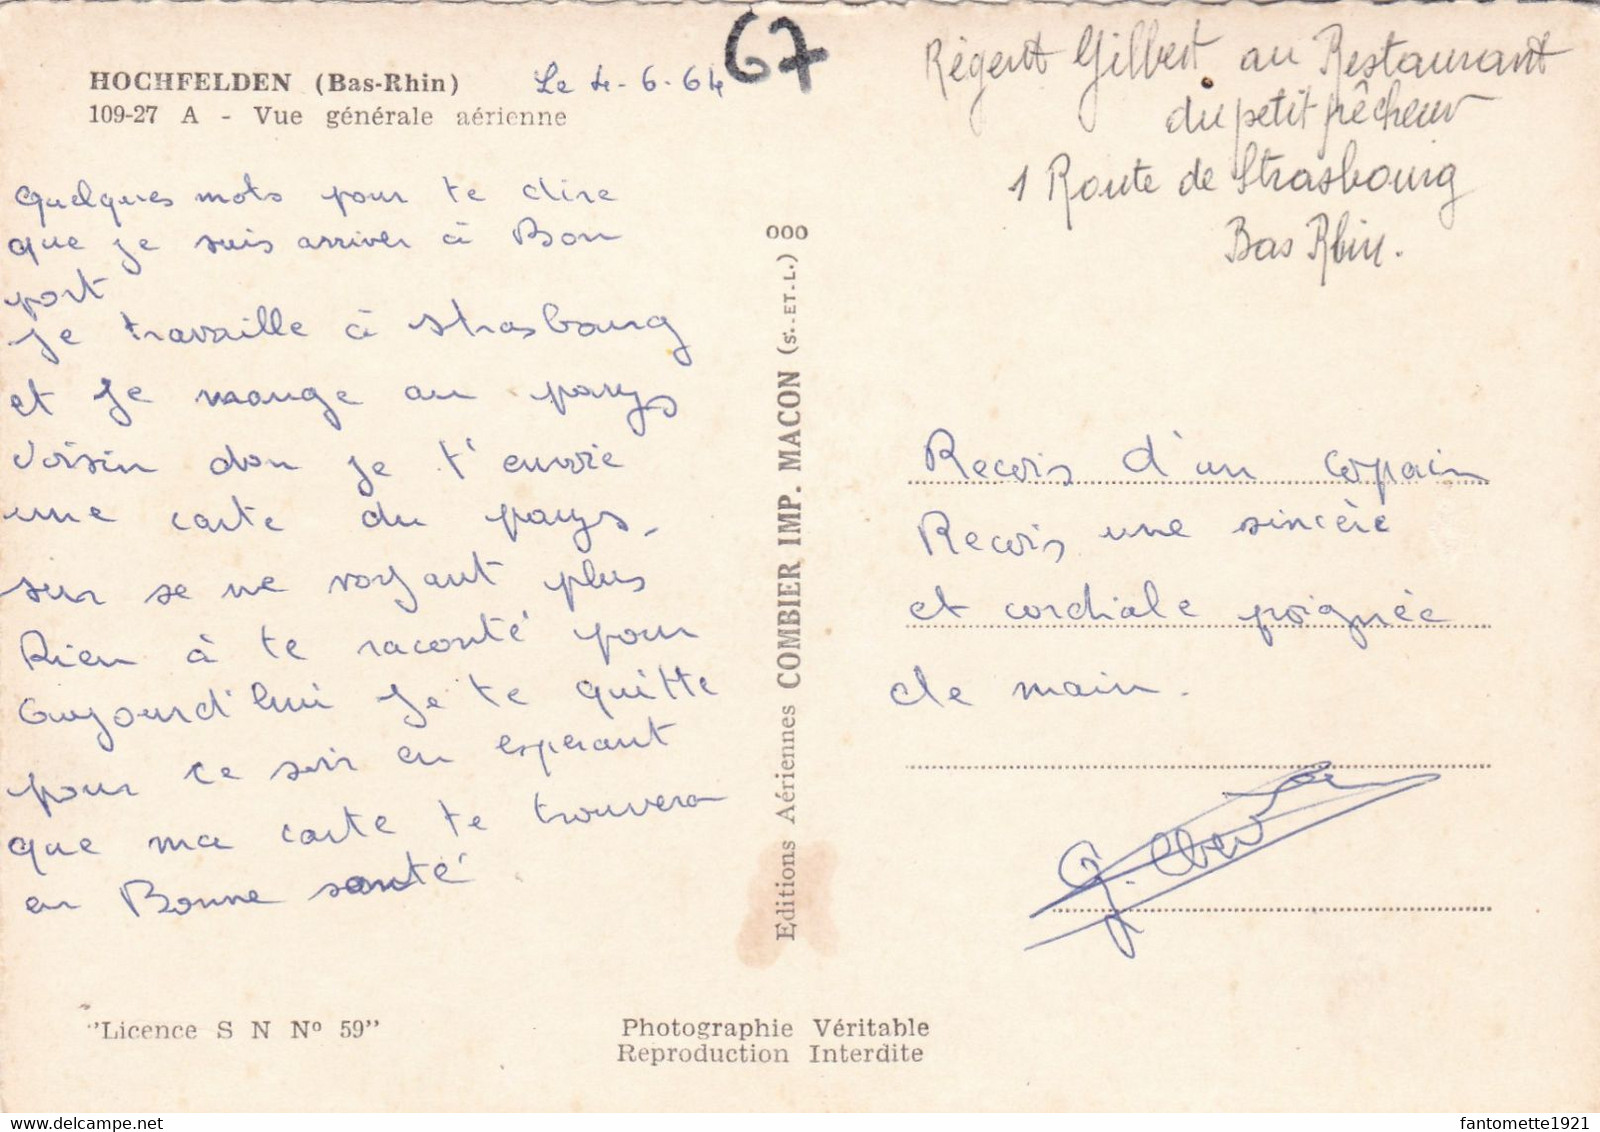 67
HOCHFELDEN (Bas-Rhin) Le 4-6-64
109-27 A - Vue générale aérienne
Quelques mots pour te dire
que je suis arriver à Bon
port
Je travaille à strasbourg
et je mange au pays
Voisin don je t'envoie
une carte du pays.
sur se ne voyant plus
Rien à te raconté pour
aujourd'hui je te quitte
pour ce soir en espérant
que ma carte te trouvera
en Bonne santé
"Licence S N Nº 59"
000
Editions Aériennes COMBIER IMP. MACON (S.-ET-L.)
Photographie Véritable
Reproduction Interdite
Régent Gilbert au Restaurant
du petit pêcheur
1 Route de Strasbourg
Bas Rhin.
Recois d'un copain
Recois une sincère
et cordiale poignée
de main.
Gilbert
fantomette1921